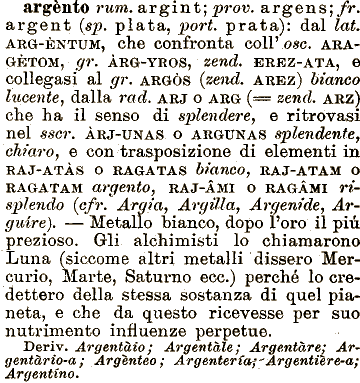 argènto rum. argint; prov. argens; fr.
argent (sp. plata, port. prata): dal lat.
ARG-ÈNTUM, che confronta coll' osc. ARA-
GÈTOM, gr. ÀRG-YROS, zend. EREZ-ATA, e
collegasi al gr. ARGÒS (zend. AREZ) bianco
lucente, dalla rad. ARJ o ARG (= zend. ARZ)
che ha il senso di splendere, e ritrovasi
nel sscr. ÀRJ-UNAS o ARGUNAS splendente,
chiaro, e con trasposizione di elementi in
RAJ-ATÀS o RAGATAS bianco, RAJ-ATAM o
RAGATAM argento, RAJ-ÂMI o RAGÂMI ri-
splendo (cfr. Argia, Argilla, Argenide, Ar-
guíre). — Metallo bianco, dopo l'oro il più
prezioso. Gli alchimisti lo chiamarono
Luna (siccome altri metalli dissero Mer-
curio, Marte, Saturno ecc.) perché lo cre-
dettero della stessa sostanza di quel pia-
neta, e che da questo ricevesse per suo
nutrimento influenze perpetue.
Deriv. Argentàio; Argentàle; Argentàre; Ar-
gentàrio-a; Argènteo; Argentería; Argentière-a;
Argentíno.